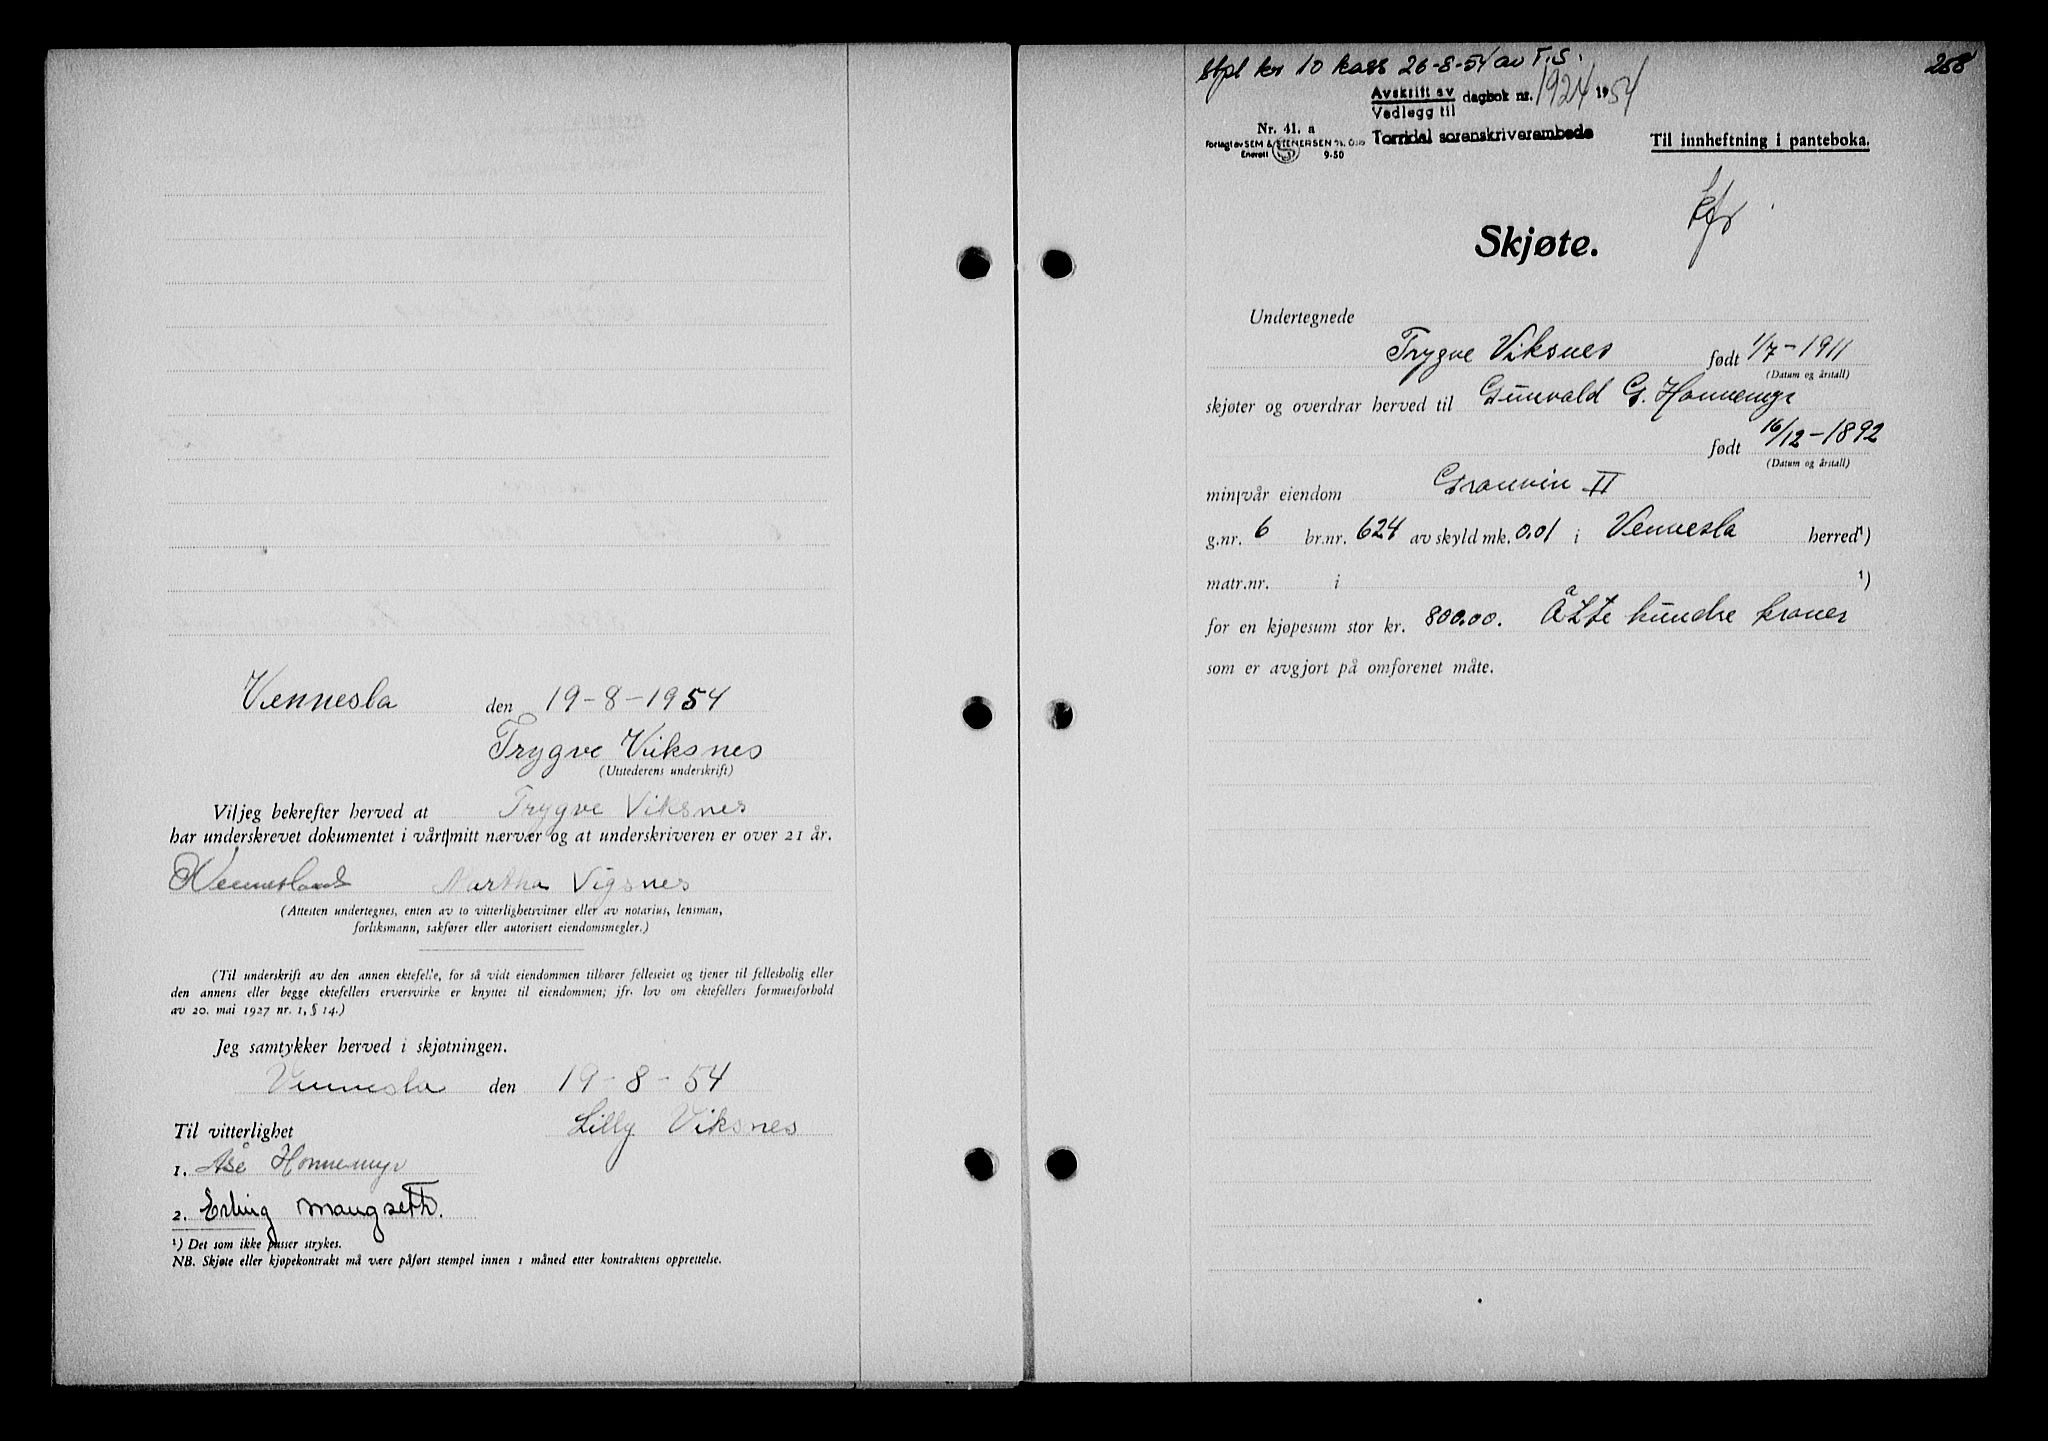 Vennesla den 19-8-1954
Trygve Viksnes
(Utstederens underskrift)
Vi/jeg bekrefter herved at Trygve Viksnes
har underskrevet dokumentet i vårt/mitt nærvær og at underskriveren er over 21 år.
Martha Vigsnes
(Attesten undertegnes, enten av to vitterlighetsvitner eller av notarius, lensman,
forliksmann, sakfører eller autorisert eiendomsmegler.)
(Til underskrift av den annen ektefelle, for så vidt eiendommen tilhører felleseiet og tjener til fellesbolig eller
den annens eller begge ektefellers erversvirke er knyttet til eiendommen; jfr. lov om ektefellers formuesforhold
av 20. mai 1927 nr. 1, § 14.)
Jeg samtykker herved i skjøtningen.
Vennesla den 19-8-54
Til vitterlighet Lilly Viksnes
1. Åse Honnemyr
2. Erling Maugseth.
¹) Det som ikke passer strykes.
NB. Skjøte eller kjøpekontrakt må være påført stempel innen 1 måned etter kontraktens opprettelse.
Stpl kr 10 kass 26-8-54 av T.S. 258
Avskrift av
Vedlegg til dagbok nr. 1924 1954
Torridal sorenskriverembede
Nr. 41. a
Forlagt av SEM & STENERSEN A/S, Oslo
Enerett S 9-50
Til innheftning i panteboka.
Skjøte.
Undertegnede
Trygve Viksnes født 1/7-1911
(Datum og årstall)
skjøter og overdrar herved til Gunvald G. Honnemyr
født 16/12-1892
(Datum og årstall)
min/vår eiendom Granvin II
g.nr. 6 br.nr. 624 av skyld mk. 0.01 i Vennesla herred¹)
matr.nr. i ¹)
for en kjøpesum stor kr. 800.00. Åtte hundre kroner
som er avgjort på omforenet måte.